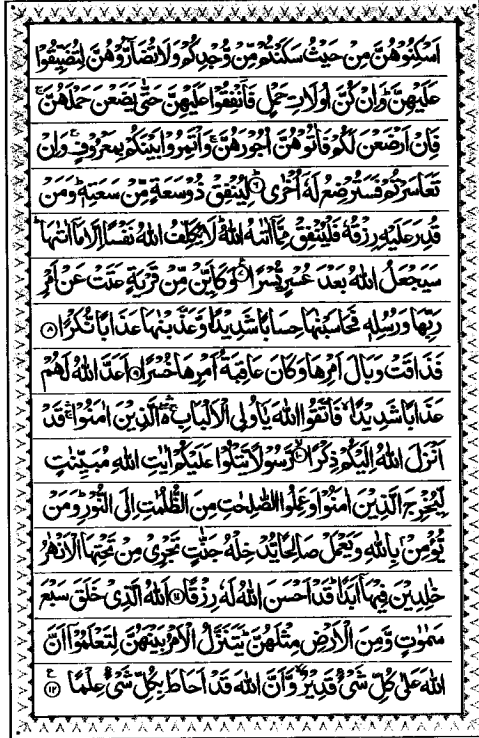 اَسْكِنُوْهُنَّ مِنْ حَيْثُ سَكَنْتُمْ مِّنْ وُّجْدِكُمْ وَلَا تُضَآرُّوْهُنَّ لِتُضَيِّقُوْا
عَلَيْهِنَّ ؕ وَاِنْ كُنَّ اُولَاتِ حَمْلٍ فَاَنْفِقُوْا عَلَيْهِنَّ حَتّٰى يَضَعْنَ حَمْلَهُنَّ ۚ
فَاِنْ اَرْضَعْنَ لَكُمْ فَاٰتُوْهُنَّ اُجُوْرَهُنَّ ۚ وَاْتَمِرُوْا بَيْنَكُمْ بِمَعْرُوْفٍ ۚ وَاِنْ
تَعَاسَرْتُمْ فَسَتُرْضِعُ لَهٗۤ اُخْرٰى ؕ۶ لِيُنْفِقْ ذُوْ سَعَةٍ مِّنْ سَعَتِهٖ ؕ وَمَنْ
قُدِرَ عَلَيْهِ رِزْقُهٗ فَلْيُنْفِقْ مِمَّاۤ اٰتٰىهُ اللّٰهُ ؕ لَا يُكَلِّفُ اللّٰهُ نَفْسًا اِلَّا مَاۤ اٰتٰىهَا ؕ
سَيَجْعَلُ اللّٰهُ بَعْدَ عُسْرٍ يُّسْرًا ۷ وَكَاَيِّنْ مِّنْ قَرْيَةٍ عَتَتْ عَنْ اَمْرِ
رَبِّهَا وَرُسُلِهٖ فَحَاسَبْنٰهَا حِسَابًا شَدِيْدًا ۙ وَّعَذَّبْنٰهَا عَذَابًا نُّكْرًا ۸
فَذَاقَتْ وَبَالَ اَمْرِهَا وَكَانَ عَاقِبَةُ اَمْرِهَا خُسْرًا ۹ اَعَدَّ اللّٰهُ لَهُمْ
عَذَابًا شَدِيْدًا ۙ فَاتَّقُوا اللّٰهَ يٰۤاُولِى الْاَلْبَابِ ۛۚ الَّذِيْنَ اٰمَنُوْا ۛؕ قَدْ
اَنْزَلَ اللّٰهُ اِلَيْكُمْ ذِكْرًا ۱۰ رَّسُوْلًا يَّتْلُوْا عَلَيْكُمْ اٰيٰتِ اللّٰهِ مُبَيِّنٰتٍ
لِّيُخْرِجَ الَّذِيْنَ اٰمَنُوْا وَعَمِلُوا الصّٰلِحٰتِ مِنَ الظُّلُمٰتِ اِلَى النُّوْرِ ؕ وَمَنْ
يُّؤْمِنْۢ بِاللّٰهِ وَيَعْمَلْ صَالِحًا يُّدْخِلْهُ جَنّٰتٍ تَجْرِىْ مِنْ تَحْتِهَا الْاَنْهٰرُ
خٰلِدِيْنَ فِيْهَاۤ اَبَدًا ؕ قَدْ اَحْسَنَ اللّٰهُ لَهٗ رِزْقًا ۱۱ اَللّٰهُ الَّذِىْ خَلَقَ سَبْعَ
سَمٰوٰتٍ وَّمِنَ الْاَرْضِ مِثْلَهُنَّ ؕ يَتَنَزَّلُ الْاَمْرُ بَيْنَهُنَّ لِتَعْلَمُوْۤا اَنَّ
اللّٰهَ عَلٰى كُلِّ شَىْءٍ قَدِيْرٌ ۙ وَّاَنَّ اللّٰهَ قَدْ اَحَاطَ بِكُلِّ شَىْءٍ عِلْمًا ۱۲ ع